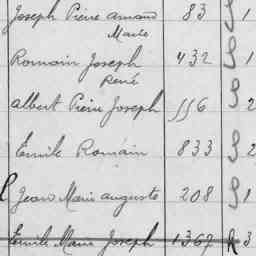 Joseph Pierre Armand 83 S 1
Marie
Romain Joseph 432 S 1
René
Albert Pierre Joseph 556 S 2
Emile Romain 833 S 2
Jean Marie Auguste 208 S 1
Emile Marie Joseph 1367 R 3